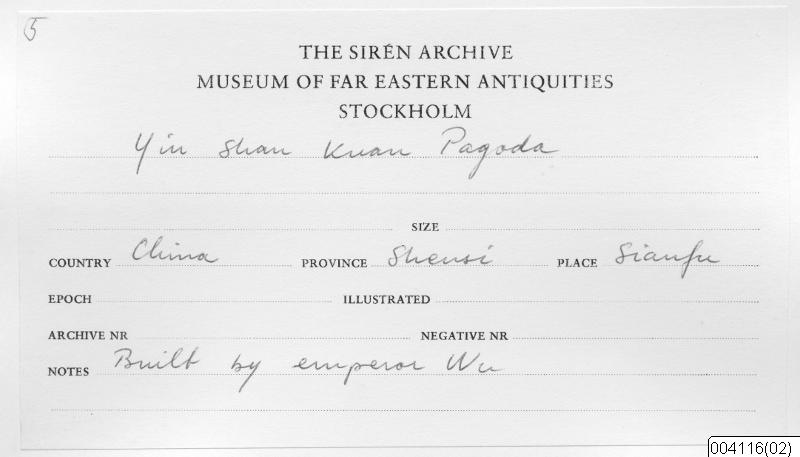 5
THE SIRÉN ARCHIVE
MUSEUM OF FAR EASTERN ANTIQUITIES
STOCKHOLM
Yin Shan Kuan Pagoda
SIZE
COUNTRY China PROVINCE Shensi PLACE Sianfu
EPOCH ILLUSTRATED
ARCHIVE NR NEGATIVE NR
NOTES Built by emperor Wu
004116(02)